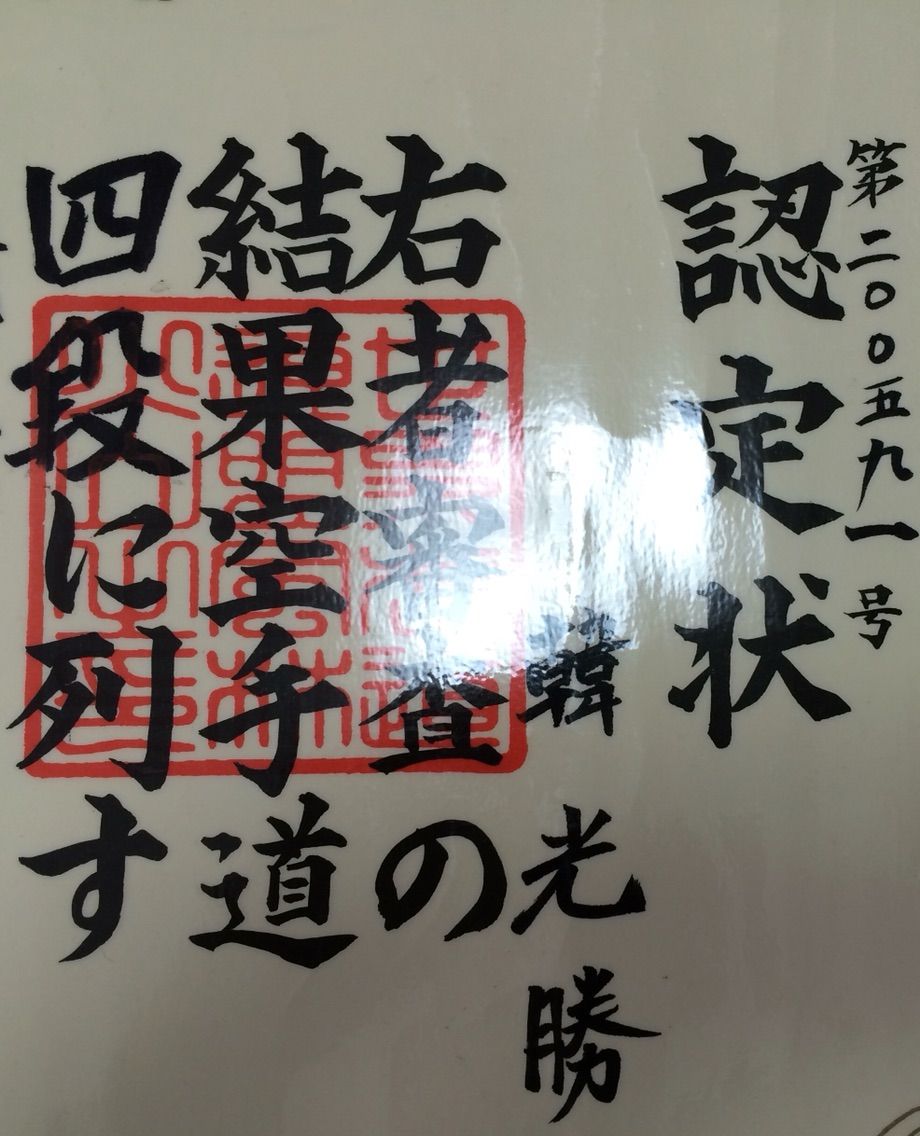 第二〇〇五九一号
認定状
韓光勝
右者審査の
結果空手道
四段に列す